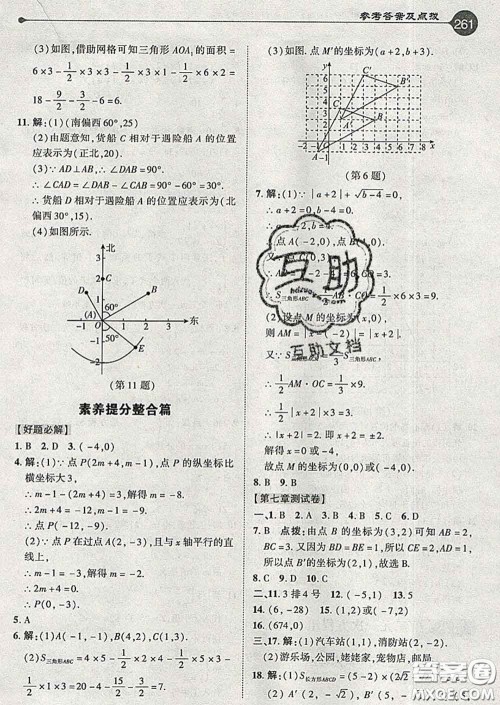 参考答案及点拨
261
(3)如图,借助网格可知三角形AOA₁的面积=
6×3-1/2×3×1-1/2×3×3-1/2×6×2=
18-9/2-3/2-6=6.
11.解:(1)(南偏西60°,25)
(2)由题意知,货船C相对于遇险船A的位置
应表示为(正北,20).
(3)∵AD⊥AB,∴∠DAB=90°.
∴∠CAD=∠DAB-∠CAB=90°-60°=30°.
∴货船D相对于遇险船A的位置应表示为(北
偏西30°,15).
(4)如图所示.
北
3
C
2
D
B
1
60°
(A)
-1
0
1
2
3
东
50°
-1
E
-2
(第11题)
素养提分整合篇
【好题必解】
1.B 2.D 3.(-4,0)
4.解:(1)∵点P(2m+4,m-1),点P的纵坐标比
横坐标大3,
∴m-1-(2m+4)=3.∴m=-8.
∴点P的坐标为(-12,-9).
(2)∵点P在过点A(2,-5),且与x轴平行的直
线上,
∴m-1=-5.解得m=-4.
∴点P的坐标为(-4,-5).
5.A
6.解:(1)A(-1,-1),B(4,2),C(1,3).
(2)S三角形ABC=4×5-1/2×2×4-1/2×1×3-
1/2×3×5=20-4-3/2-15/2=7.
(3)如图.点B′的坐标为
C′
B′
C
A′
B
A
-1
O
1 2 3 4 5 6 7 8 x
(第6题)
7.解:(1)∵|a+2|+√(b-4)=0,
∴a+2=0,b-4=0.
∴点A(-2,0),点B
三角形ABC
1/2×6×3=9.
(2)设点M的坐标为(x,0),
则AM=|x-(-2)|=|x+2|.
又∵S
三角形ABC,
∴1/2AM·OC=1/3×9.
∴1/2|x+2|×3=3.
∴|x+2|=2.
即x+2=±2,解得x=0或-4.
故点M的坐标为(0,0)或(-4,0).
【第七章测试卷】
7.B 点拨:由点B的坐标为(3,2)可知AB=2,
BC=3.又因为BD=BC,所以BD=BC=3.
所以点D的坐标为(0,2).
8.C 9.D 10.C
二、11.3排4号 12.四 13.-5 1
14.(6,-28) 15.(1,2)或(-7,2)
16.(674,0)
三、17.解:(1)汽车站(1,1),消防站(2,-2).
(2)游乐场,公园,姥姥家,宠物店,邮局.
18.解:(1)S长方形ABCD
(2)A(2,0),B(5,0)
互助
互助文档